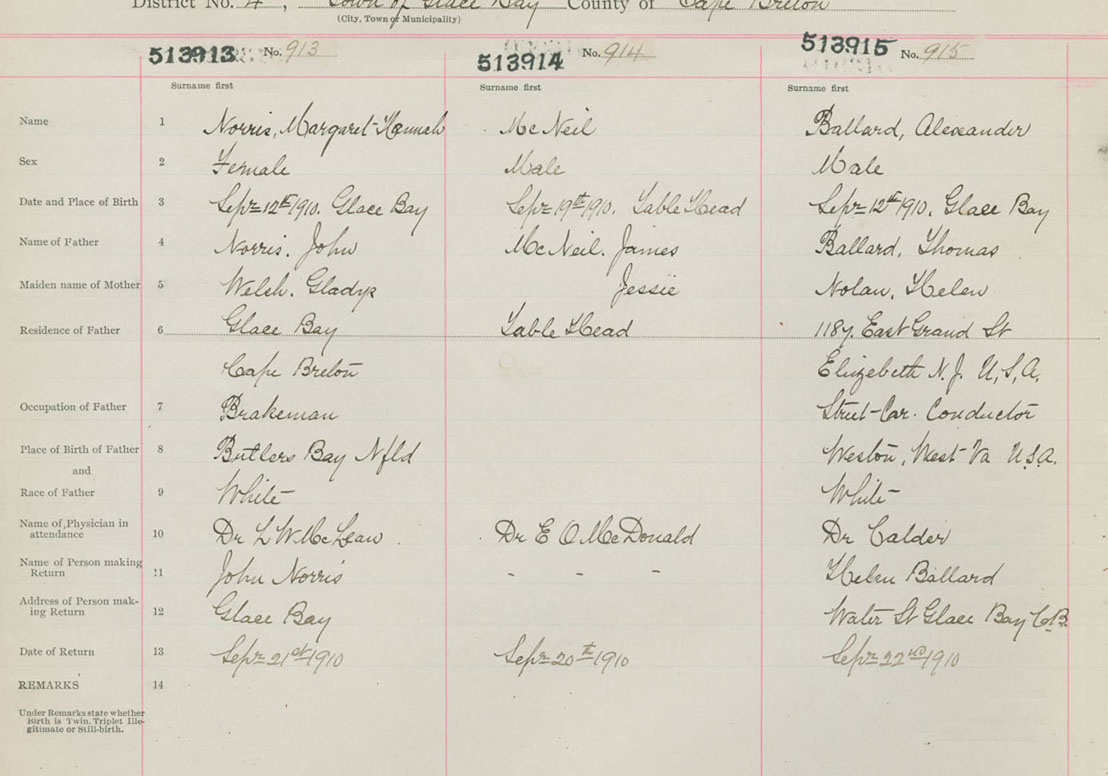 District No. 4, Town of Glace Bay County of Cape Breton
(City, Town or Municipality)
513913 No. 913 513914 No. 914 513915 No. 915
Surname first Surname first Surname first
Name 1 Norris, Margaret Hannah McNeil Ballard, Alexander
Sex 2 Female Male Male
Date and Place of Birth 3 Sepr 12th 1910. Glace Bay Sepr 19th 1910. Table Head Sepr 12th 1910. Glace Bay
Name of Father 4 Norris. John McNeil. James Ballard, Thomas
Maiden name of Mother 5 Welsh. Gladys Jessie Nolan, Helen
Residence of Father 6 Glace Bay Table Head 1187. East Grand St
Cape Breton Elizebeth N.J. U,S,A,
Occupation of Father 7 Brakeman Street-Car. Conductor
Place of Birth of Father 8 Butlers Bay Nfld Weston, West Va U.S.A.
and
Race of Father 9 White White
Name of Physician in
attendance 10 Dr L W McLean. Dr E O McDonald Dr Calder
Name of Person making
Return 11 John Norris - - - Helen Ballard
Address of Person mak-
ing Return 12 Glace Bay Water St Glace Bay C.B.
Date of Return 13 Sepr 21st 1910 Sepr 20th 1910 Sepr 22nd 1910
REMARKS 14
Under Remarks state whether
Birth is Twin. Triplet Ille-
gitimate or Still-birth.